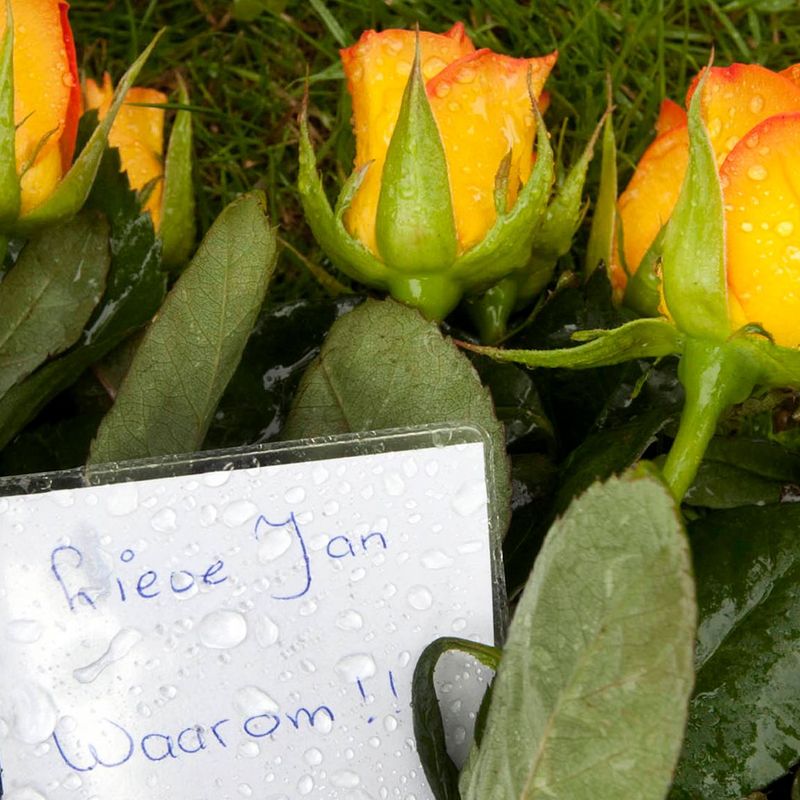 Lieve Jan
Waarom !!